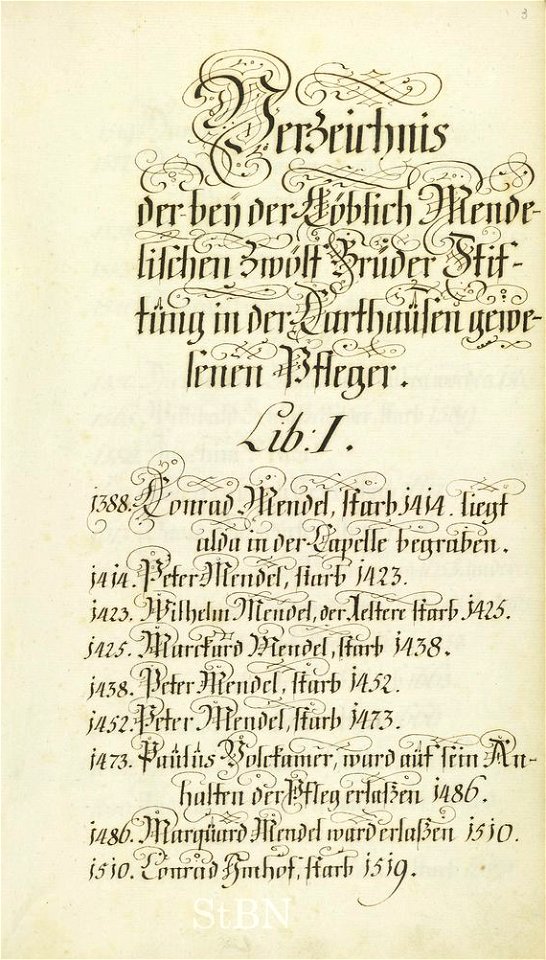 3
Verzeichnis
der beÿ der Löblich Mende-
lischen Zwölf Brüder Stif-
tüng in der Carthaüsen gewe-
senen Pfleger.
Lib: I.
1388. Conrad Mendel, starb 1414. liegt
alda in der Capelle begraben.
1414. Peter Mendel, starb 1423.
1423. Wilhelm Mendel, der Aeltere starb 1425.
1425. Marckard Mendel, starb 1438.
1438. Peter Mendel, starb 1452.
1452. Peter Mendel, starb 1473.
1473. Paülüs Volckamer, ward aüf sein An-
halten der Pfleg erlaßen 1486.
1486. Marqüard Mendel ward erlaßen 1510.
1510. Conrad Imhof, starb 1519.
StBN